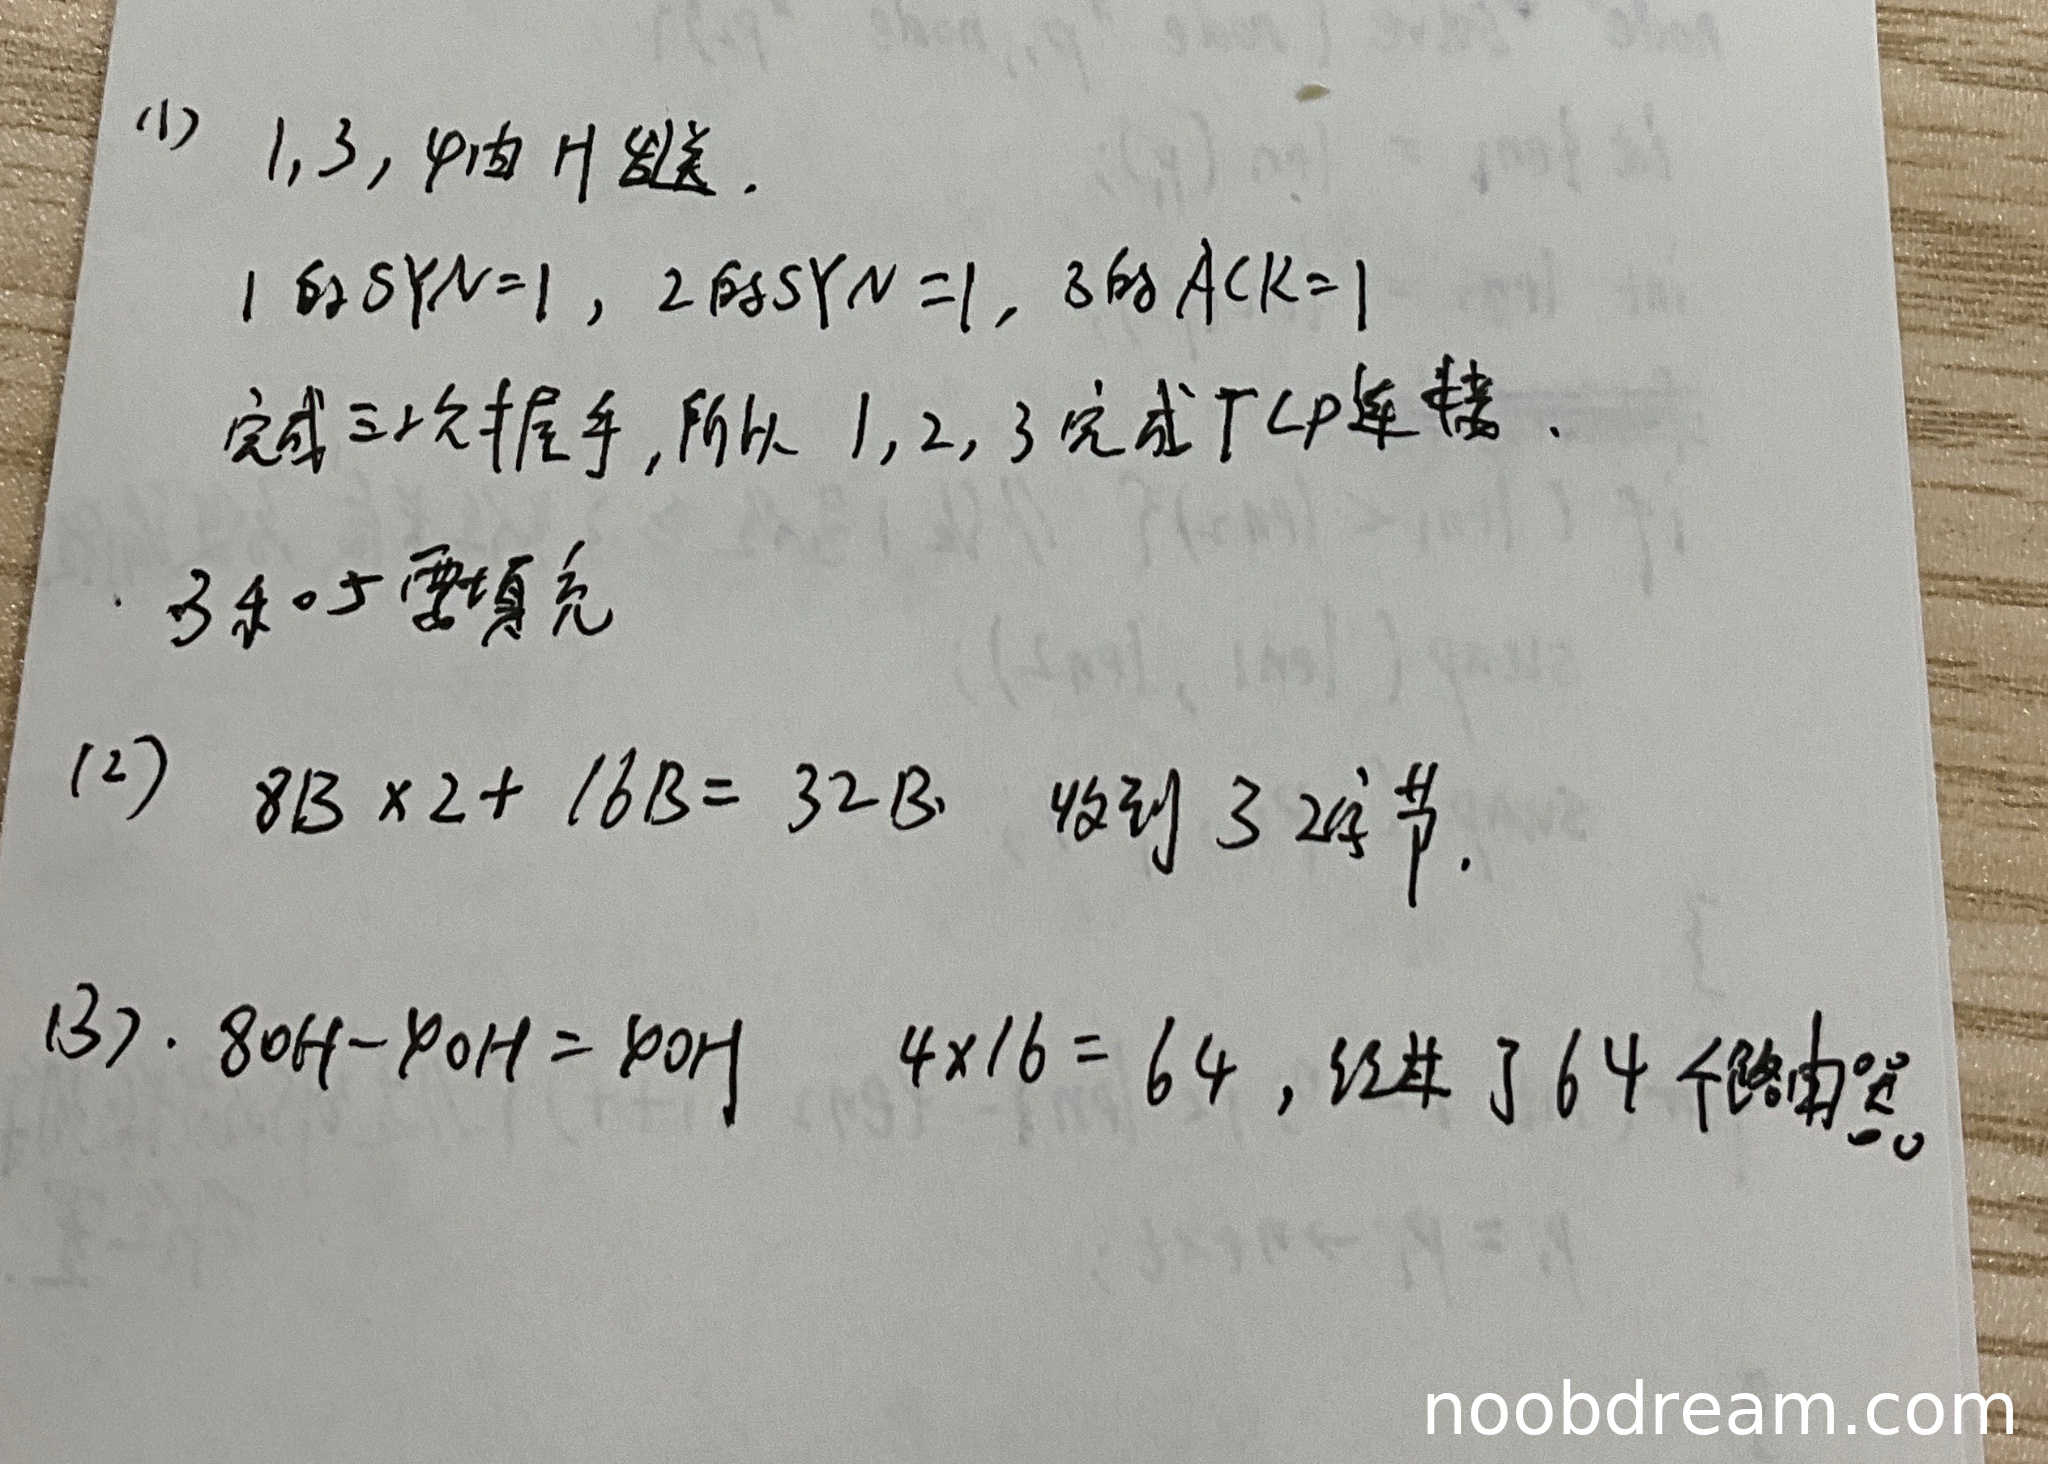 (1) 1,3,4由H发送.
1的SYN=1, 2的SYN=1, 3的ACK=1
完成三次握手,所以 1,2,3完成TCP连接.
3和5需填充
(2) 8B×2+16B=32B. 收到32字节.
(3). 80H-40H=40H 4×16=64,经过了64个路由器
noobdream.com